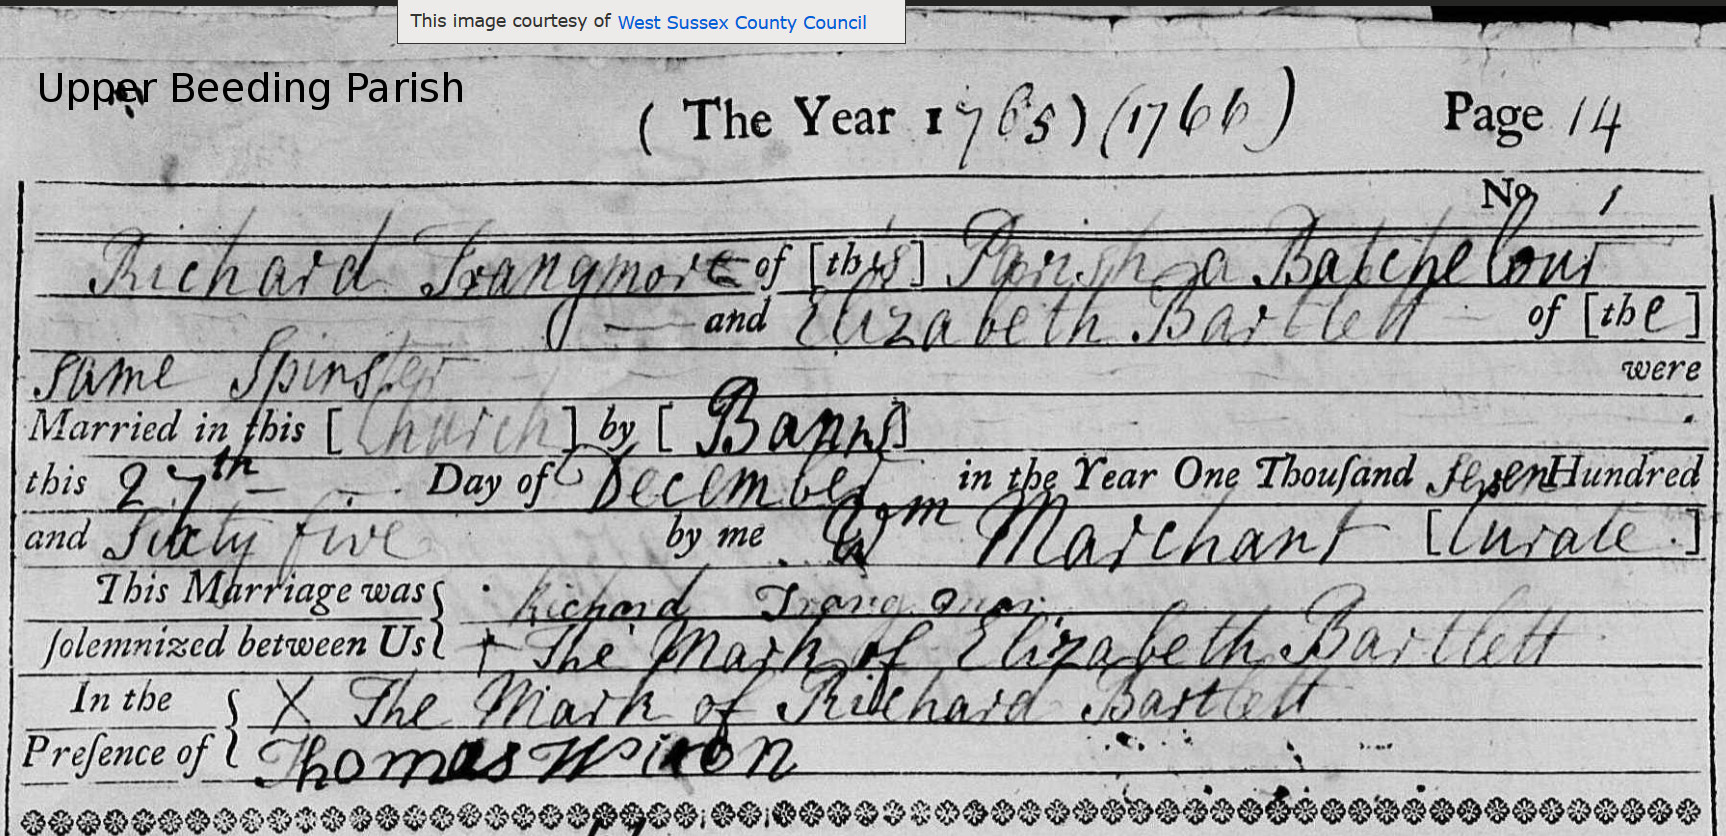 This image courtesy of West Sussex County Council
Upper Beeding Parish
( The Year 1765 ) (1766) Page 14
No 1
Richard Trangmore of [this] Parish a Batchelour
and Elizabeth Bartlett of [the]
same Spinster were
Married in this [Church] by [Banns]
this 27th Day of December in the Year One Thouſand seven Hundred
and Sixty five by me Wm Marchant [Curate.]
This Marriage was { Richard Trangmor
ſolemnized between Us { † The Mark of Elizabeth Bartlett
In the { X The Mark of Richard Bartlett
Preſence of { Thomas